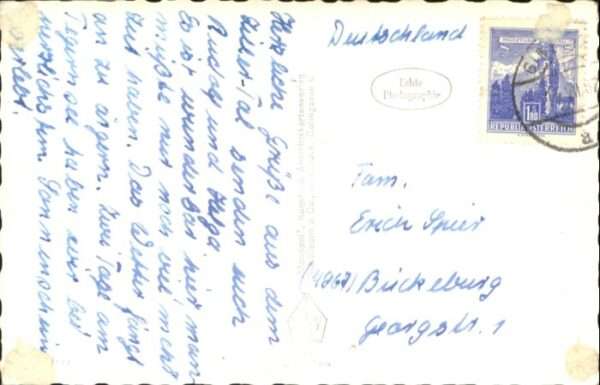 Herzliche Grüße aus dem
Ziller-Tal senden euch
Rudof und Helga
Es ist wunderbar hier man
müßte nur noch viel mehr
Zeit haben. Das Wetter fängt
an zu ärgern. Zwei Tage am
Tegernsee haben wir bei
herrlichstem Sonnenschein
verlebt.
Deutschland
Echte
Photographie
REPUBLIK ÖSTERREICH
Fam.
Erich Spier
(4967) Bückeburg
Georgstr. 1